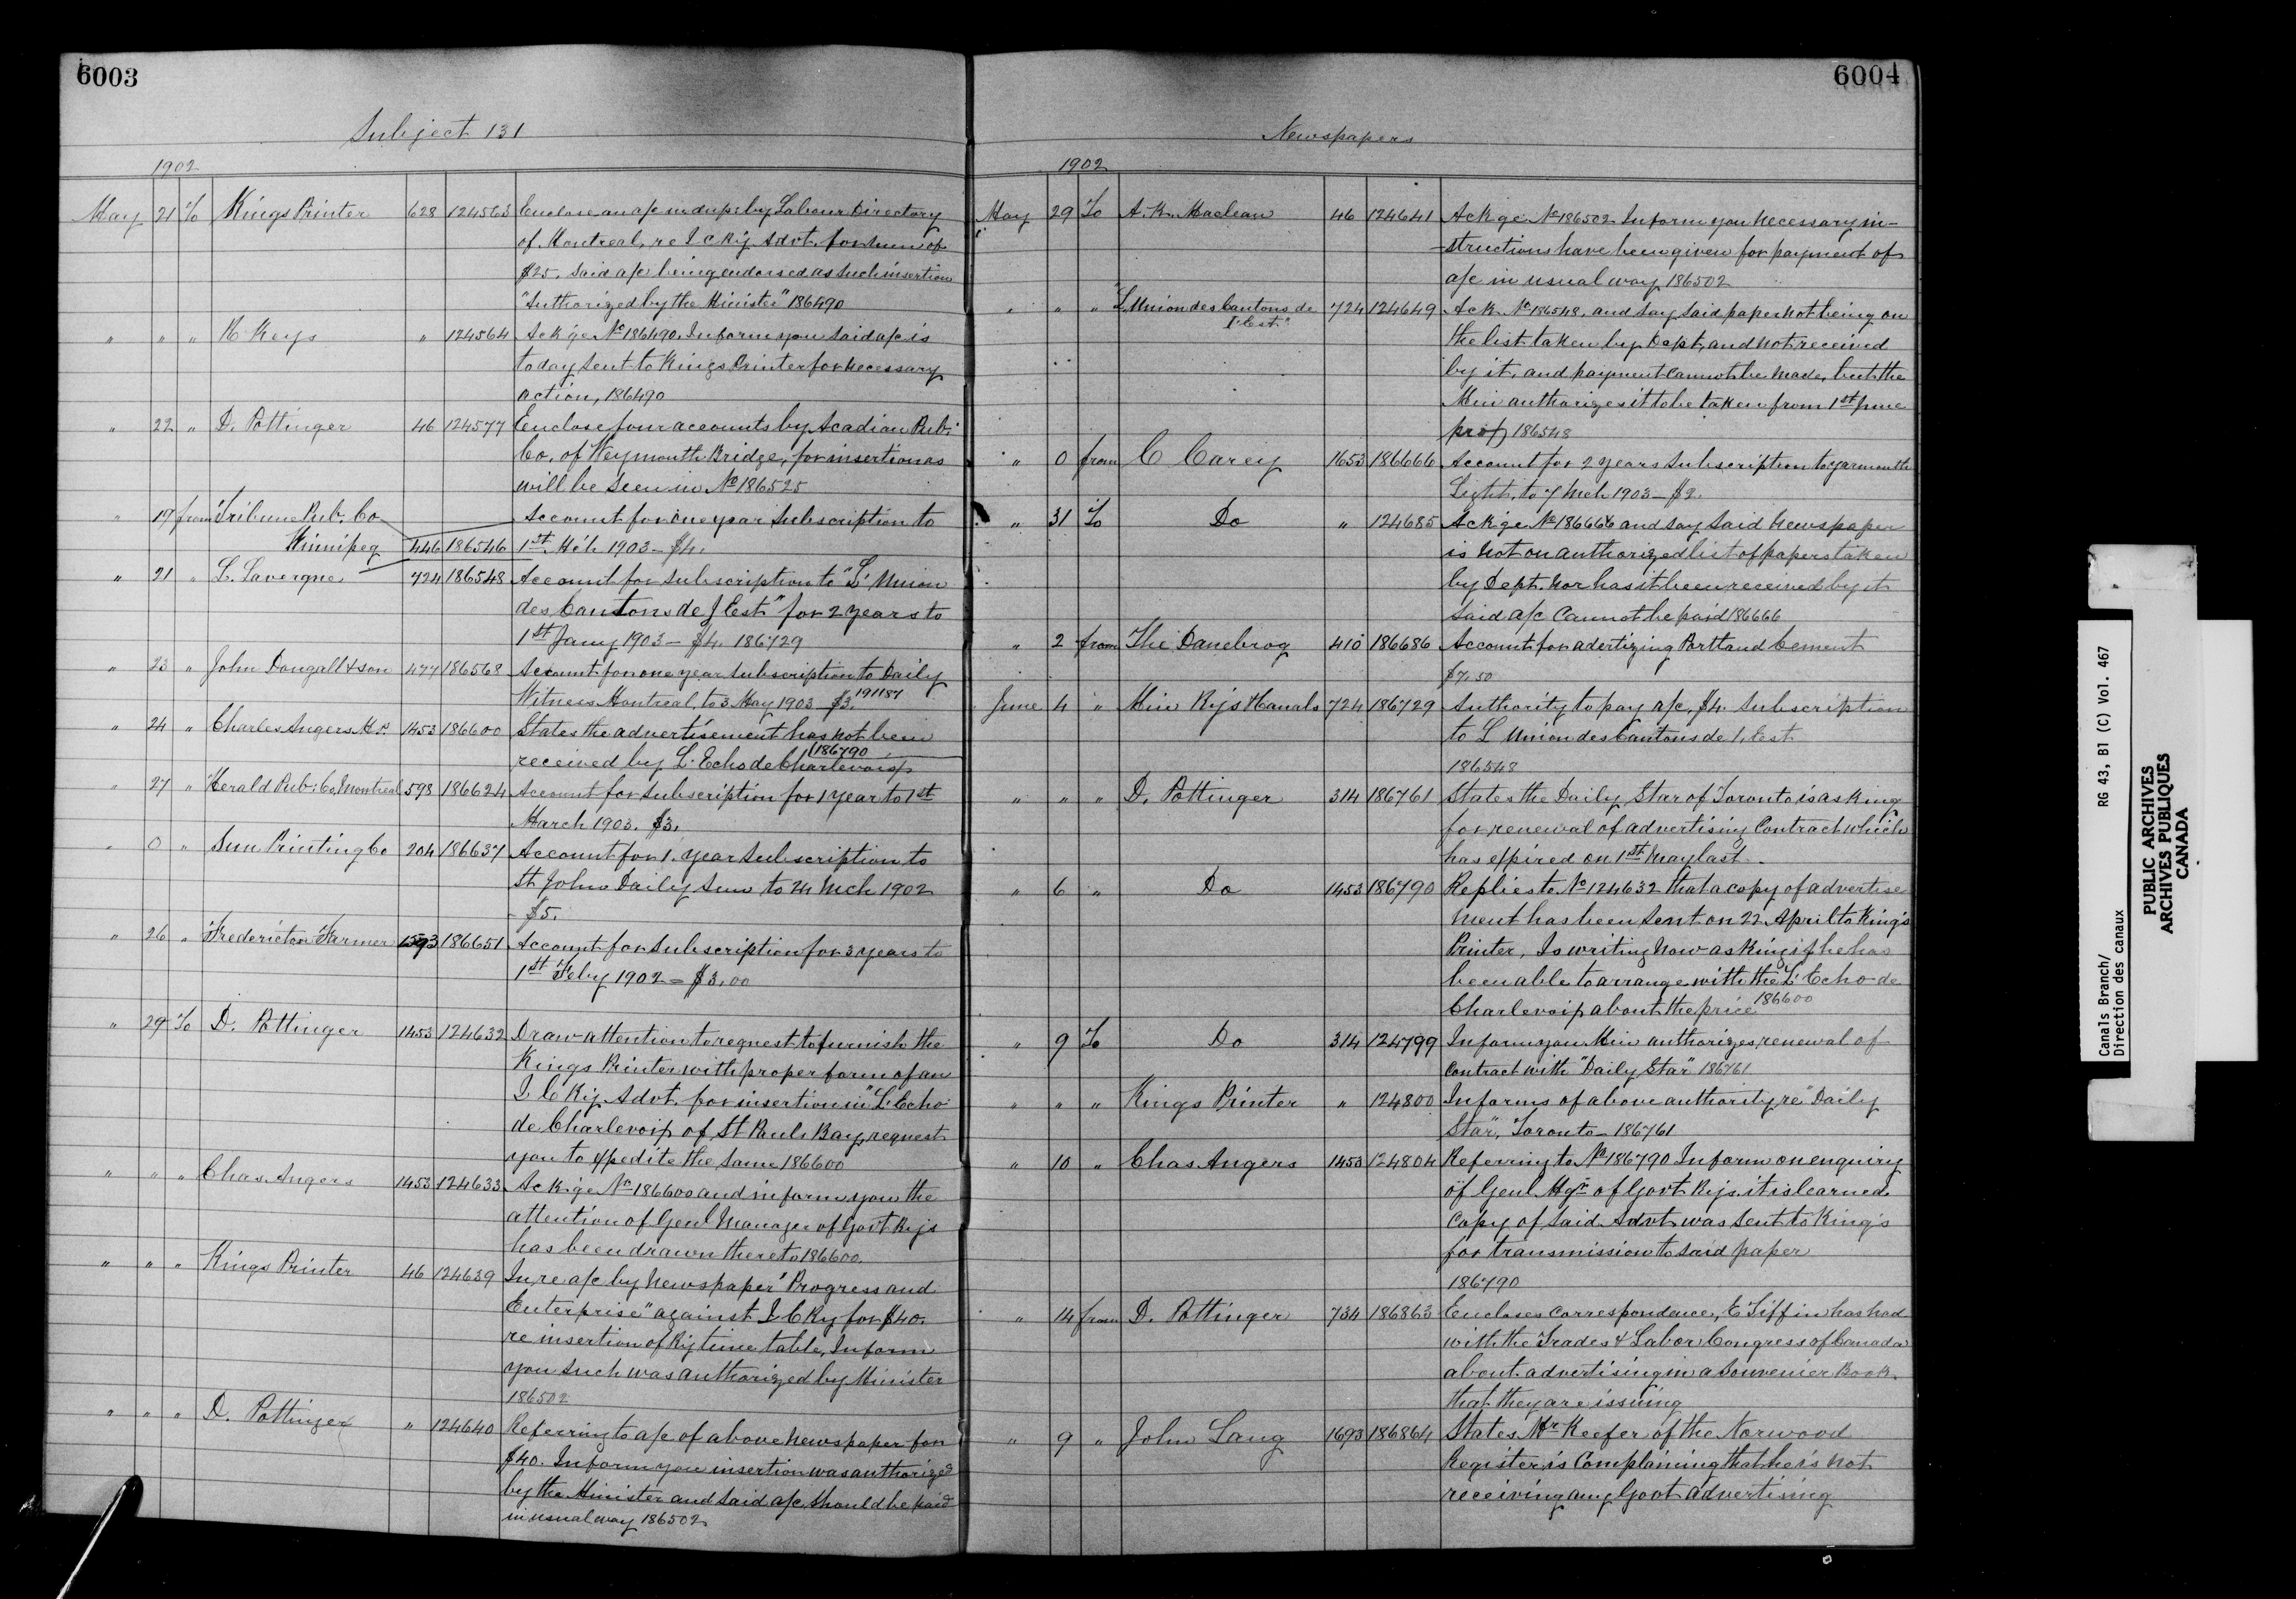 6003
Subject 131
1902
May 21 To Kings Printer 628 124563 Enclose an a/c in dup: by Labour Directory
of Montreal, re I C Ry Advt. for sum of
$25. Said a/c being endorsed as such insertion
"Authorized by the Minister" 186490
" " " K Keys " 124564 Ackge No 186490. Inform you said a/c is
today sent to Kings Printer for necessary
action, 186490
" 22 " D. Pottinger 46 124577 Enclose four accounts by Acadian Pub:
Co. of Weymouth Bridge, for insertion as
will be seen in No 186525
" 19 from Tribune Pub. Co Account for one year subscription to
Winnipeg 446 186546 1st Mch 1903 - $4.
" 21 " L. Lavergne 724 186548 Account for subscription to "L' Union
des Cantons de l'Est" for 2 years to
1st Jany 1903 - $4. 186729
" 23 " John Dougall & son 477 186568 Account for one year subscription to Daily
Witness Montreal, to 3 May 1903 - $3. 191187
" 24 " Charles Angers M.P. 1453 186600 States the advertisement has not been
received by L' Echo de Charlevoix 186790
" 27 " Herald Pub: Co, Montreal 598 186624 Account for subscription for 1 year to 1st
March 1903. $3.
" 0 " Sun Printing Co 204 186637 Account for 1. year subscription to
St John Daily Sun to 24 Mch 1902
- $5.
" 26 " "Fredericton Farmer" 1593 186651 Account for subscription for 3 years to
1st Feby 1902 = $3.00
" 29 To D. Pottinger 1453 124632 Draw attention to request to furnish the
Kings Printer with proper form of an
I C Ry Advt. for insertion in "L' Echo
de Charlevoix of St Pauls Bay, request
you to expedite the same 186600
" " " Chas. Angers 1453 124633 Ackge No 186600 and inform you the
attention of Genl Manager of Govt Rys
has been drawn thereto 186600.
" " " Kings Printer 46 124639 In re a/c by Newspaper "Progress and
Enterprise" against I C Ry for $40.
re insertion of Ry time table, Inform
you such was authorized by Minister
186502
" " " D. Pottinger " 124640 Referring to a/c of above Newspaper for
$40. Inform you insertion was authorized
by the Minister and said a/c should be paid
in usual way 186502
6004
Newspapers
1902
May 29 To A. K. Maclean 46 124641 Ackge No 186502 Inform you necessary in-
-structions have been given for payment of
a/c in usual way 186502
" " " "L'Union des Cantons de 724 124649 Ack. No 186548, and say said paper not being on
l'Est." the list taken by Dept, and not received
by it, and payment cannot be made, but the
Min authorizes it to be taken from 1st June
prox 186548
" 0 from C Carey 1653 186666 Account for 2 years subscription to Yarmouth
Light, to 7 Mch 1903 - $2.
" 31 To Do " 124685 Ackge No 186666 and say said Newspaper
is not on authorized list of papers taken
by Dept. nor has it been received by it
said a/c cannot be paid 186666
" 2 from The Danebrog 410 186686 Account for adertizing Portland Cement
$7.50
June 4 " Min Rys & Canals 724 186729 Authority to pay a/c, $4. Subscription
to L Union des Cantons de l'Est
186548
" " " D. Pottinger 314 186761 States the Daily Star of Toronto is asking
for renewal of advertising Contract which
has expired on 1st May last.
" 6 " Do 1453 186790 Replies to No 124632 that a copy of advertise
ment has been sent on 22 April to King's
Printer, Is writing now asking if he has
been able to arrange with the L' Echo de
Charlevoix about the price 186600
" 9 To Do 314 124799 Inform you Min authorizes renewal of
contract with "Daily Star" 186761
" " " Kings Printer " 124800 Informs of above authority re "Daily
Star", Toronto - 186761
" 10 " Chas Angers 1453 124804 Referring to No 186790 Inform on enquiry
of Genl. Mgr of Govt Rys. it is learned
copy of said Advt was sent to King's
for transmission to said paper
186790
" 14 from D. Pottinger 734 186863 Encloses correspondence, E Tiffin has had
with the Trades & Labor Congress of Canada
about advertising in a Souvenier Book
that they are issuing
" 9 " John Lang 1693 186864 States Mr Keefer of the Norwood
Register is Complaining that he is not
receiving any Govt advertising
Canals Branch/ RG 43, B1 (C) Vol. 467
Direction des canaux
PUBLIC ARCHIVES
ARCHIVES PUBLIQUES
CANADA